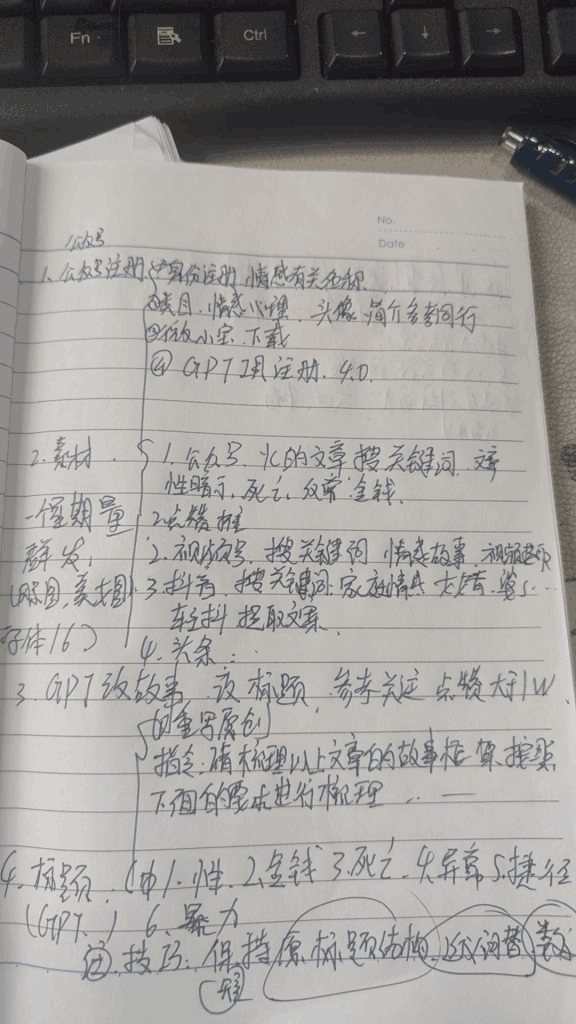 Fn
Ctrl
No.
Date
公众号
1. 公众号注册 ①身份注册 情感有关名称
②类目. 情感心理. 头像 简介多看同行
③ 小宝 下载
④ GPT 注册. 4.0.
2. 素材. 1. 公众号. 火的文章 搜关键词
性暗示, 死亡, 金钱.
一个星期量 2点赞
群发, 2. 视频号. 搜关键词 情感故事
3. 抖音. 搜关键词. 家庭情
字体16) 轻抖 提取文案.
4. 头条..
3. GPT改故事 改标题, 参考关注 点赞大于1W
重写原创
指令: 请梳理以上文章的故事框架 按照
下面的要求进行梳理 ... —
4. 标题. 1. 性. 2. 金钱 3. 死亡. 4. 异常 5. 捷径
(GPT.) 6. 暴力
技巧: 保持原标题结构. 词替